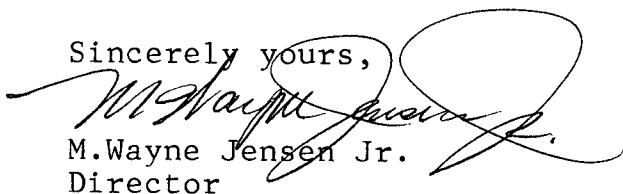 Sincerely yours,
M Wayne Jensen Jr.
M.Wayne Jensen Jr.
Director